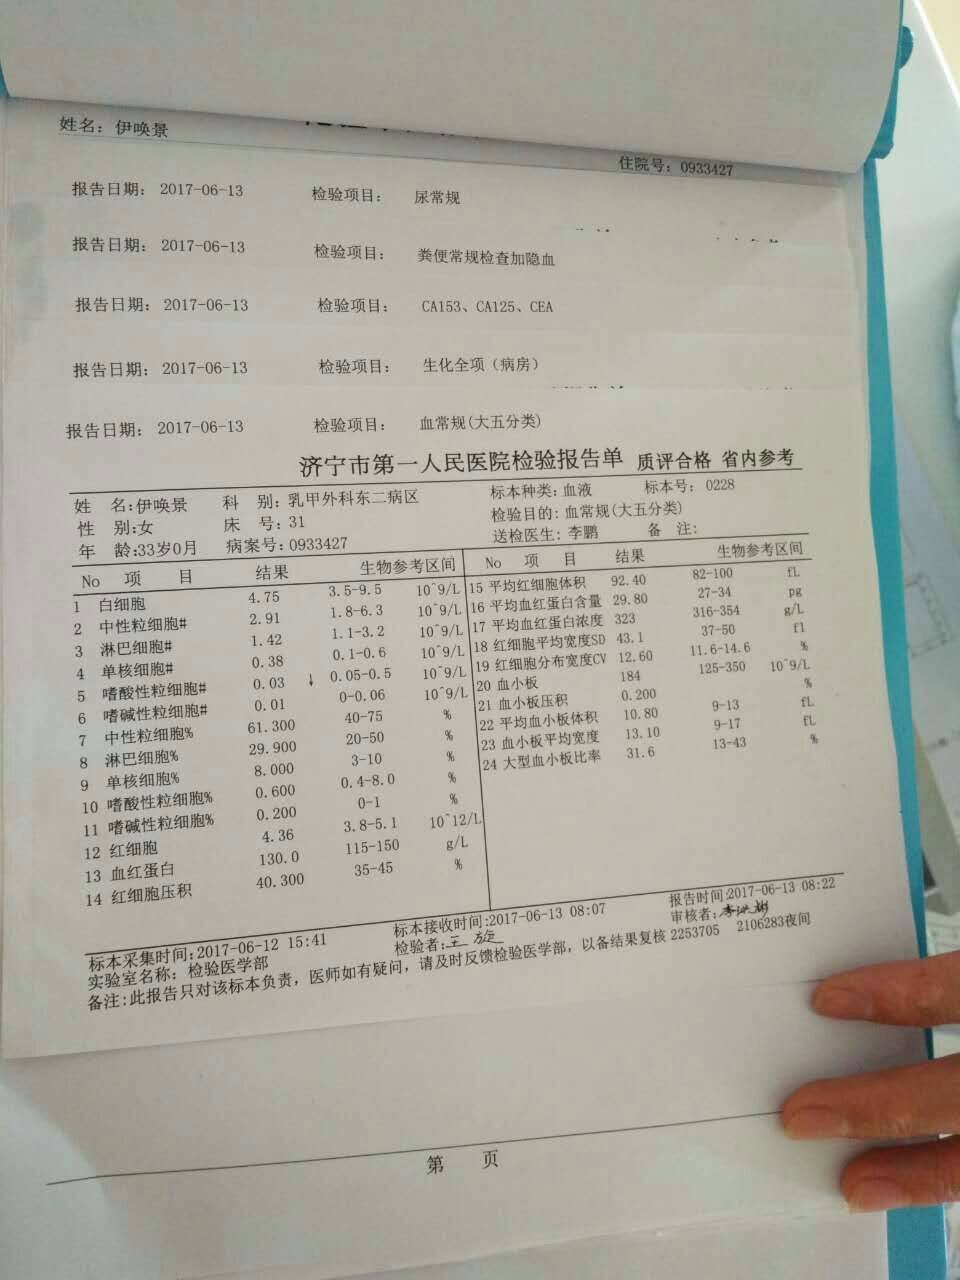 姓名：伊唤景
住院号：0933427
报告日期： 2017-06-13 检验项目： 尿常规
报告日期： 2017-06-13 检验项目： 粪便常规检查加隐血
报告日期： 2017-06-13 检验项目： CA153、CA125、CEA
报告日期： 2017-06-13 检验项目： 生化全项（病房）
报告日期： 2017-06-13 检验项目： 血常规(大五分类)
济宁市第一人民医院检验报告单 质评合格 省内参考
姓 名:伊唤景 科 别:乳甲外科东二病区 标本种类:血液 标本号: 0228
性 别:女 床 号:31 检验目的:血常规(大五分类)
年 龄:33岁0月 病案号:0933427 送检医生:李鹏 备 注:
No 项 目 结果 生物参考区间 No 项 目 结果 生物参考区间
1 白细胞 4.75 3.5-9.5 10^9/L 15 平均红细胞体积 92.40 82-100 fL
2 中性粒细胞# 2.91 1.8-6.3 10^9/L 16 平均血红蛋白含量 29.80 27-34 pg
3 淋巴细胞# 1.42 1.1-3.2 10^9/L 17 平均血红蛋白浓度 323 316-354 g/L
4 单核细胞# 0.38 0.1-0.6 10^9/L 18 红细胞平均宽度SD 43.1 37-50 fl
5 嗜酸性粒细胞# 0.03 ↓ 0.05-0.5 10^9/L 19 红细胞分布宽度CV 12.60 11.6-14.6 %
6 嗜碱性粒细胞# 0.01 0-0.06 10^9/L 20 血小板 184 125-350 10^9/L
7 中性粒细胞% 61.300 40-75 % 21 血小板压积 0.200 %
8 淋巴细胞% 29.900 20-50 % 22 平均血小板体积 10.80 9-13 fL
9 单核细胞% 8.000 3-10 % 23 血小板平均宽度 13.10 9-17 fL
10 嗜酸性粒细胞% 0.600 0.4-8.0 % 24 大型血小板比率 31.6 13-43 %
11 嗜碱性粒细胞% 0.200 0-1 %
12 红细胞 4.36 3.8-5.1 10^12/L
13 血红蛋白 130.0 115-150 g/L
14 红细胞压积 40.300 35-45 %
标本采集时间:2017-06-12 15:41 标本接收时间:2017-06-13 08:07 报告时间:2017-06-13 08:22
实验室名称: 检验医学部 检验者:王旋 审核者:
备注:此报告只对该标本负责，医师如有疑问，请及时反馈检验医学部，以备结果复核 2253705 2106283夜间
第 页